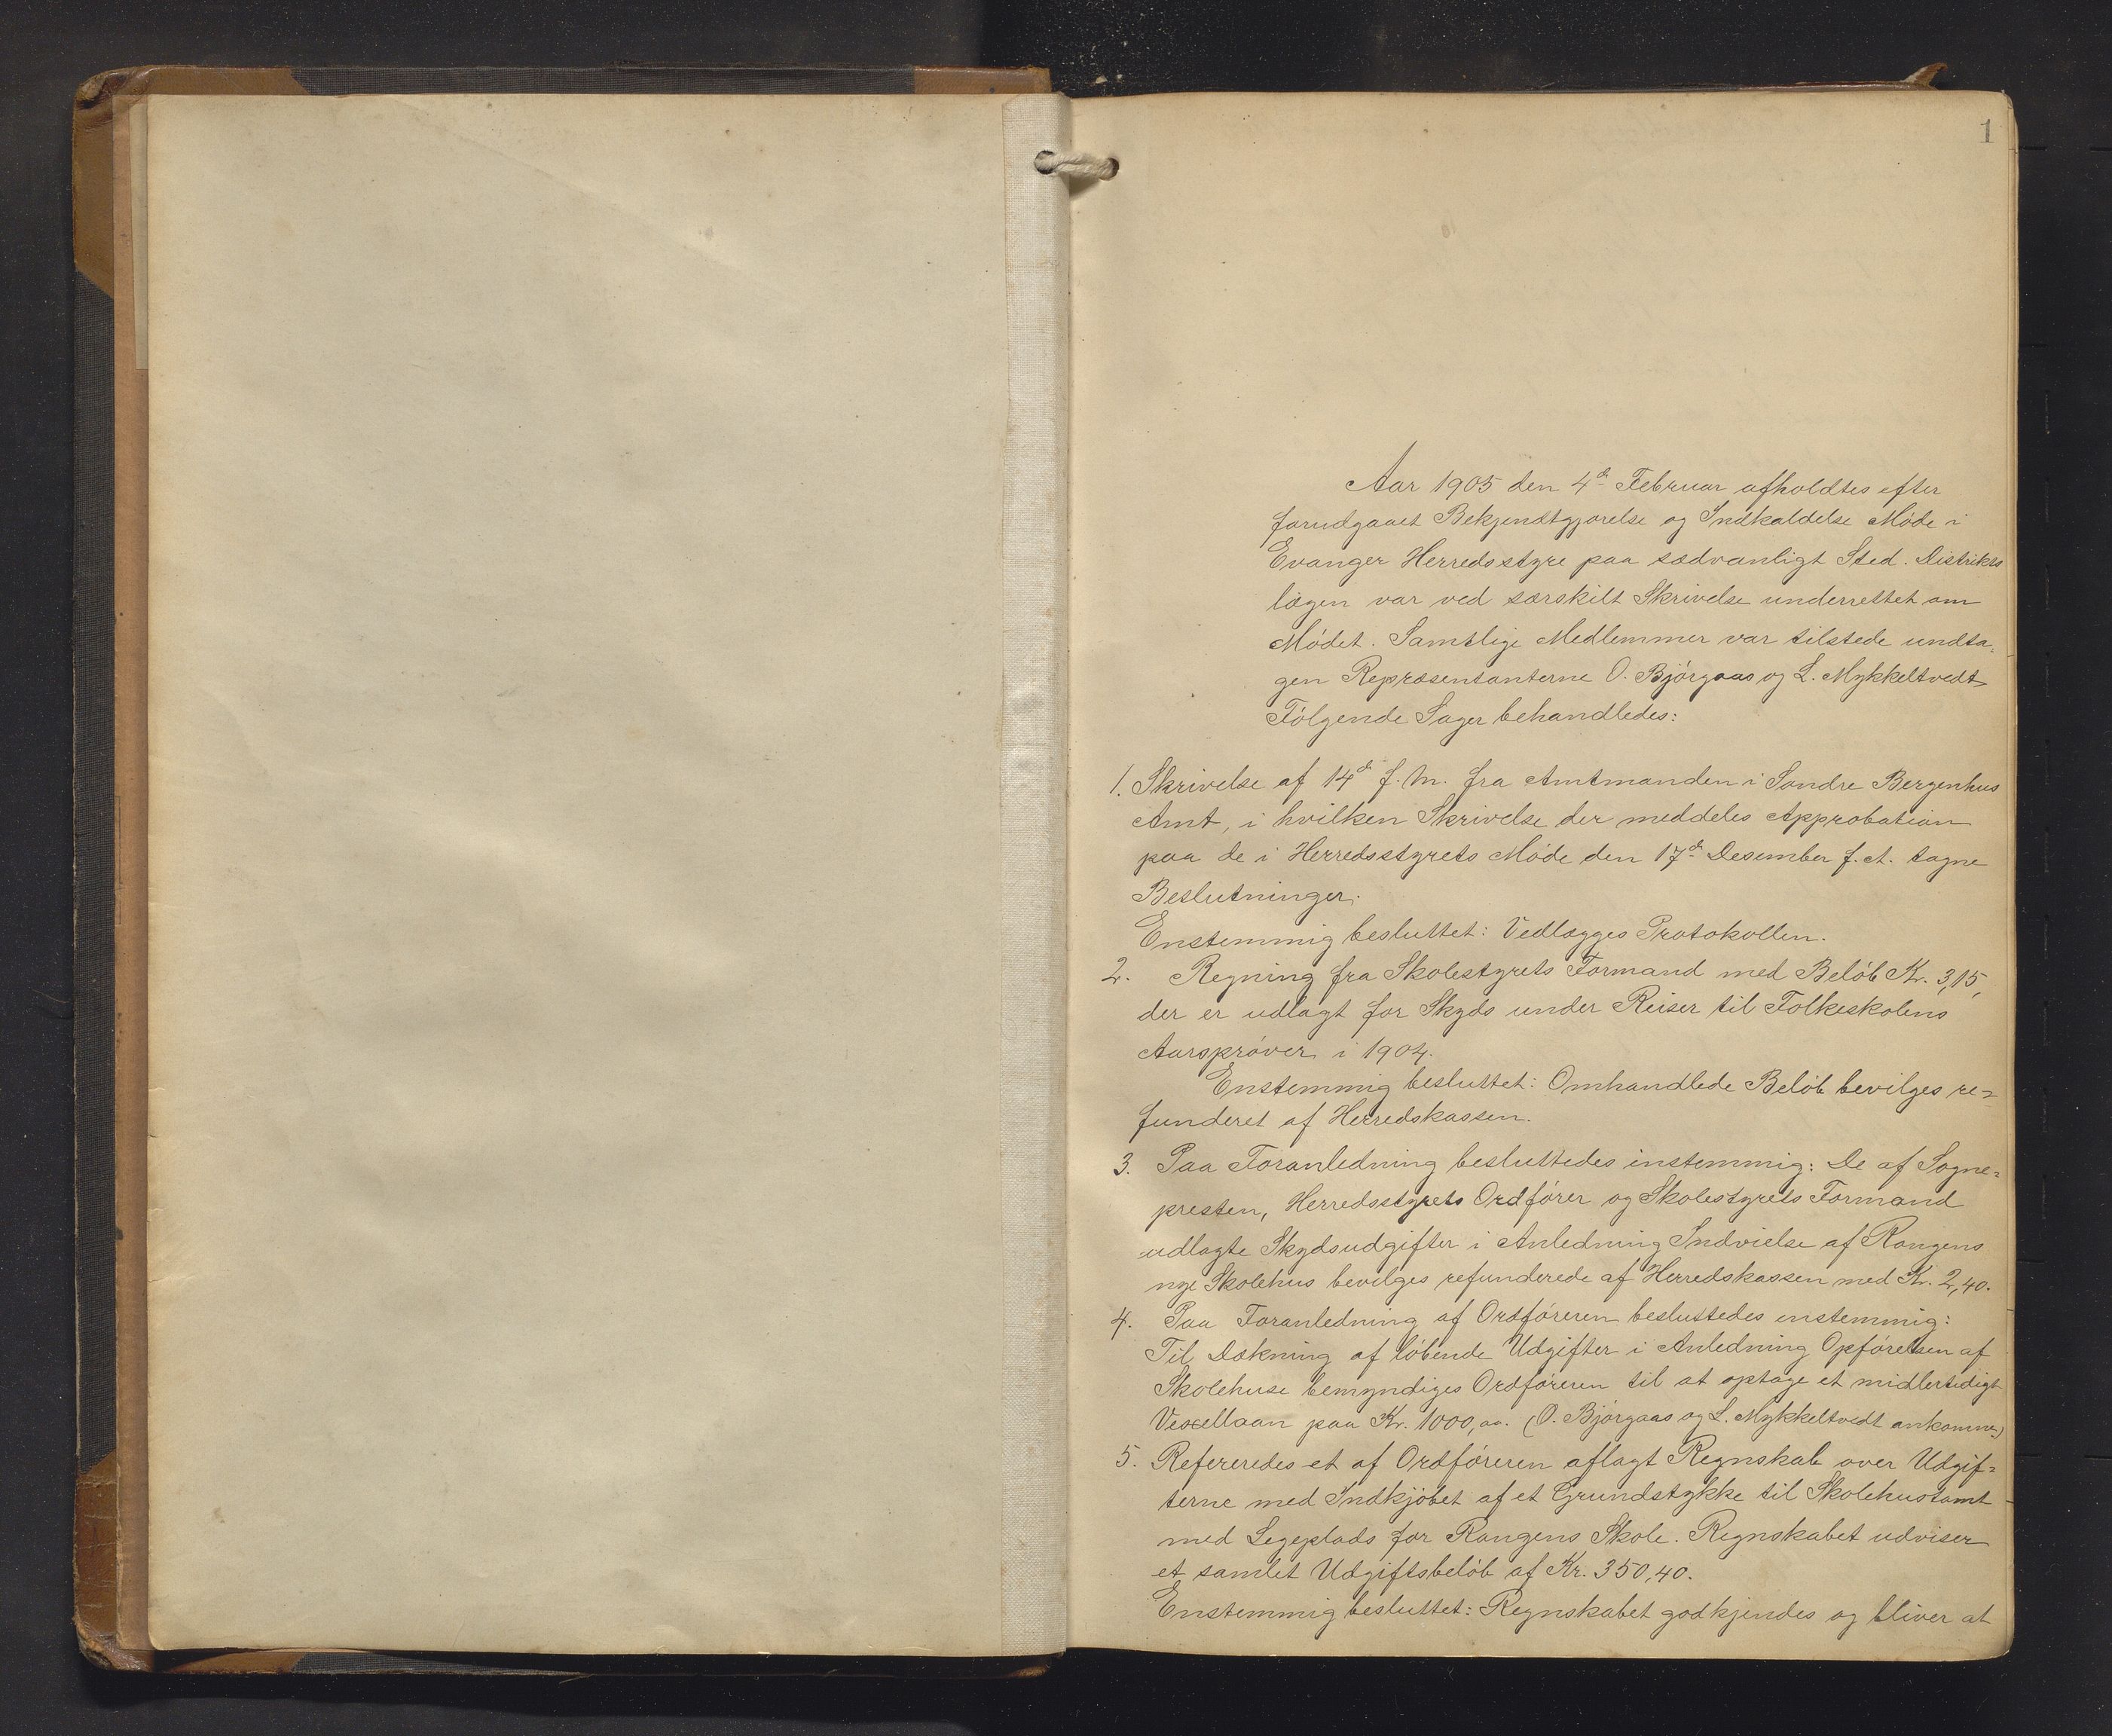 1
Aar 1905 den 4de Februar afholdtes efter
forudgaaet Bekjendtgjørelse og Indkaldelse Møde i
Evanger Herredsstyre paa sædvanligt Sted. Distrikts
lægen var ved særskilt Skrivelse underrettet om
Mødet. Samtlige Medlemmer var tilstede undta-
gen Repræsentanterne O. Bjørgaas og L. Mykkeltvedt
Følgende Sager behandledes:
1. Skrivelse af 14de f. M. fra Amtmanden i Søndre Bergenhus
Amt, i hvilken Skrivelse der meddeles Approbation
paa de i Herredsstyrets Møde den 17de Desember f. A. tagne
Beslutninger.
Enstemmig besluttet: Vedlægges Protokollen.
2. Regning fra Skolestyrets Formand med Beløb Kr. 3,15,
der er udlagt for Skyds under Reiser til Folkeskolens
Aarsprøver i 1904.
Enstemmig besluttet: Omhandlede Beløb bevilges re=
funderet af Herredskassen.
3. Paa Foranledning besluttedes instemmig: De af Sogne=
presten, Herredsstyrets Ordfører og Skolestyrets Formand
udlagte Skydsudgifter i Anledning Indvielse af Rongens
nye Skolehus bevilges refunderede af Herredskassen med Kr. 2,40.
4. Paa Foranledning af Ordføreren besluttedes enstemmig:
Til Dækning af løbende Udgifter i Anledning Opførelsen af
Skolehuse bemyndiges Ordføreren til at optage et midlertidigt
Vexellaan paa Kr. 1000,00. (O. Bjørgaas og L. Mykkeltvedt ankomne)
5. Refereredes et af Ordføreren aflagt Regnskab over Udgif=
terne med Indkjøbet af et Grundstykke til Skolehustomt
med Legeplads for Rongens Skole. Regnskabet udviser
et samlet Udgiftsbeløb af Kr. 350,40.
Enstemmig besluttet: Regnskabet godkjendes og bliver at